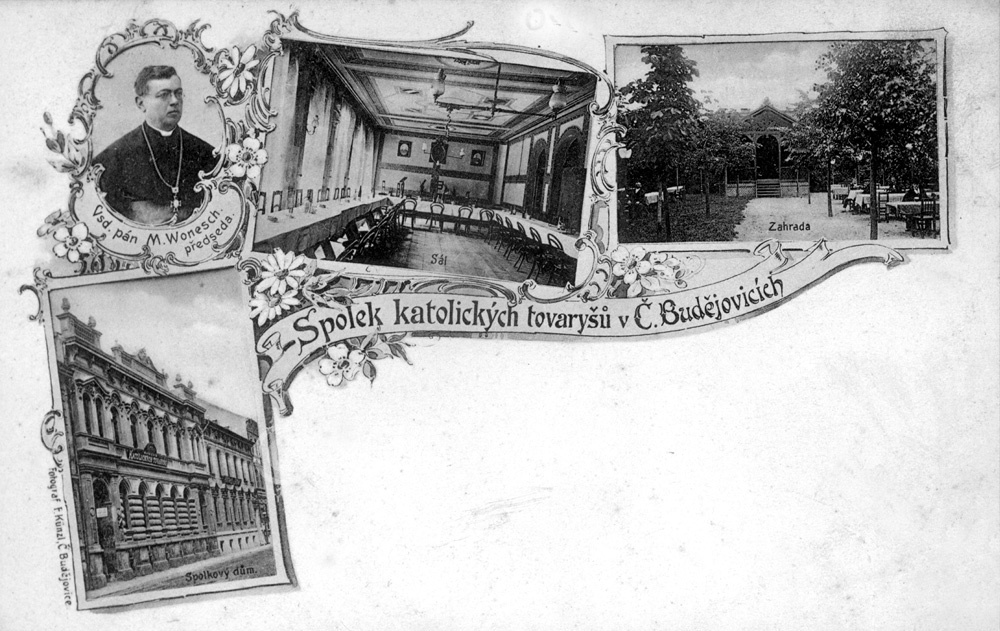 Vsd. pán M. Wonesch,
předseda.
Sál
Zahrada
Spolek katolických tovaryšů v Č. Budějovicích
KATOLICKÝCH TOVARYŠŮ
Spolkový dům.
Fotograf F. Künzl, Č. Budějovice